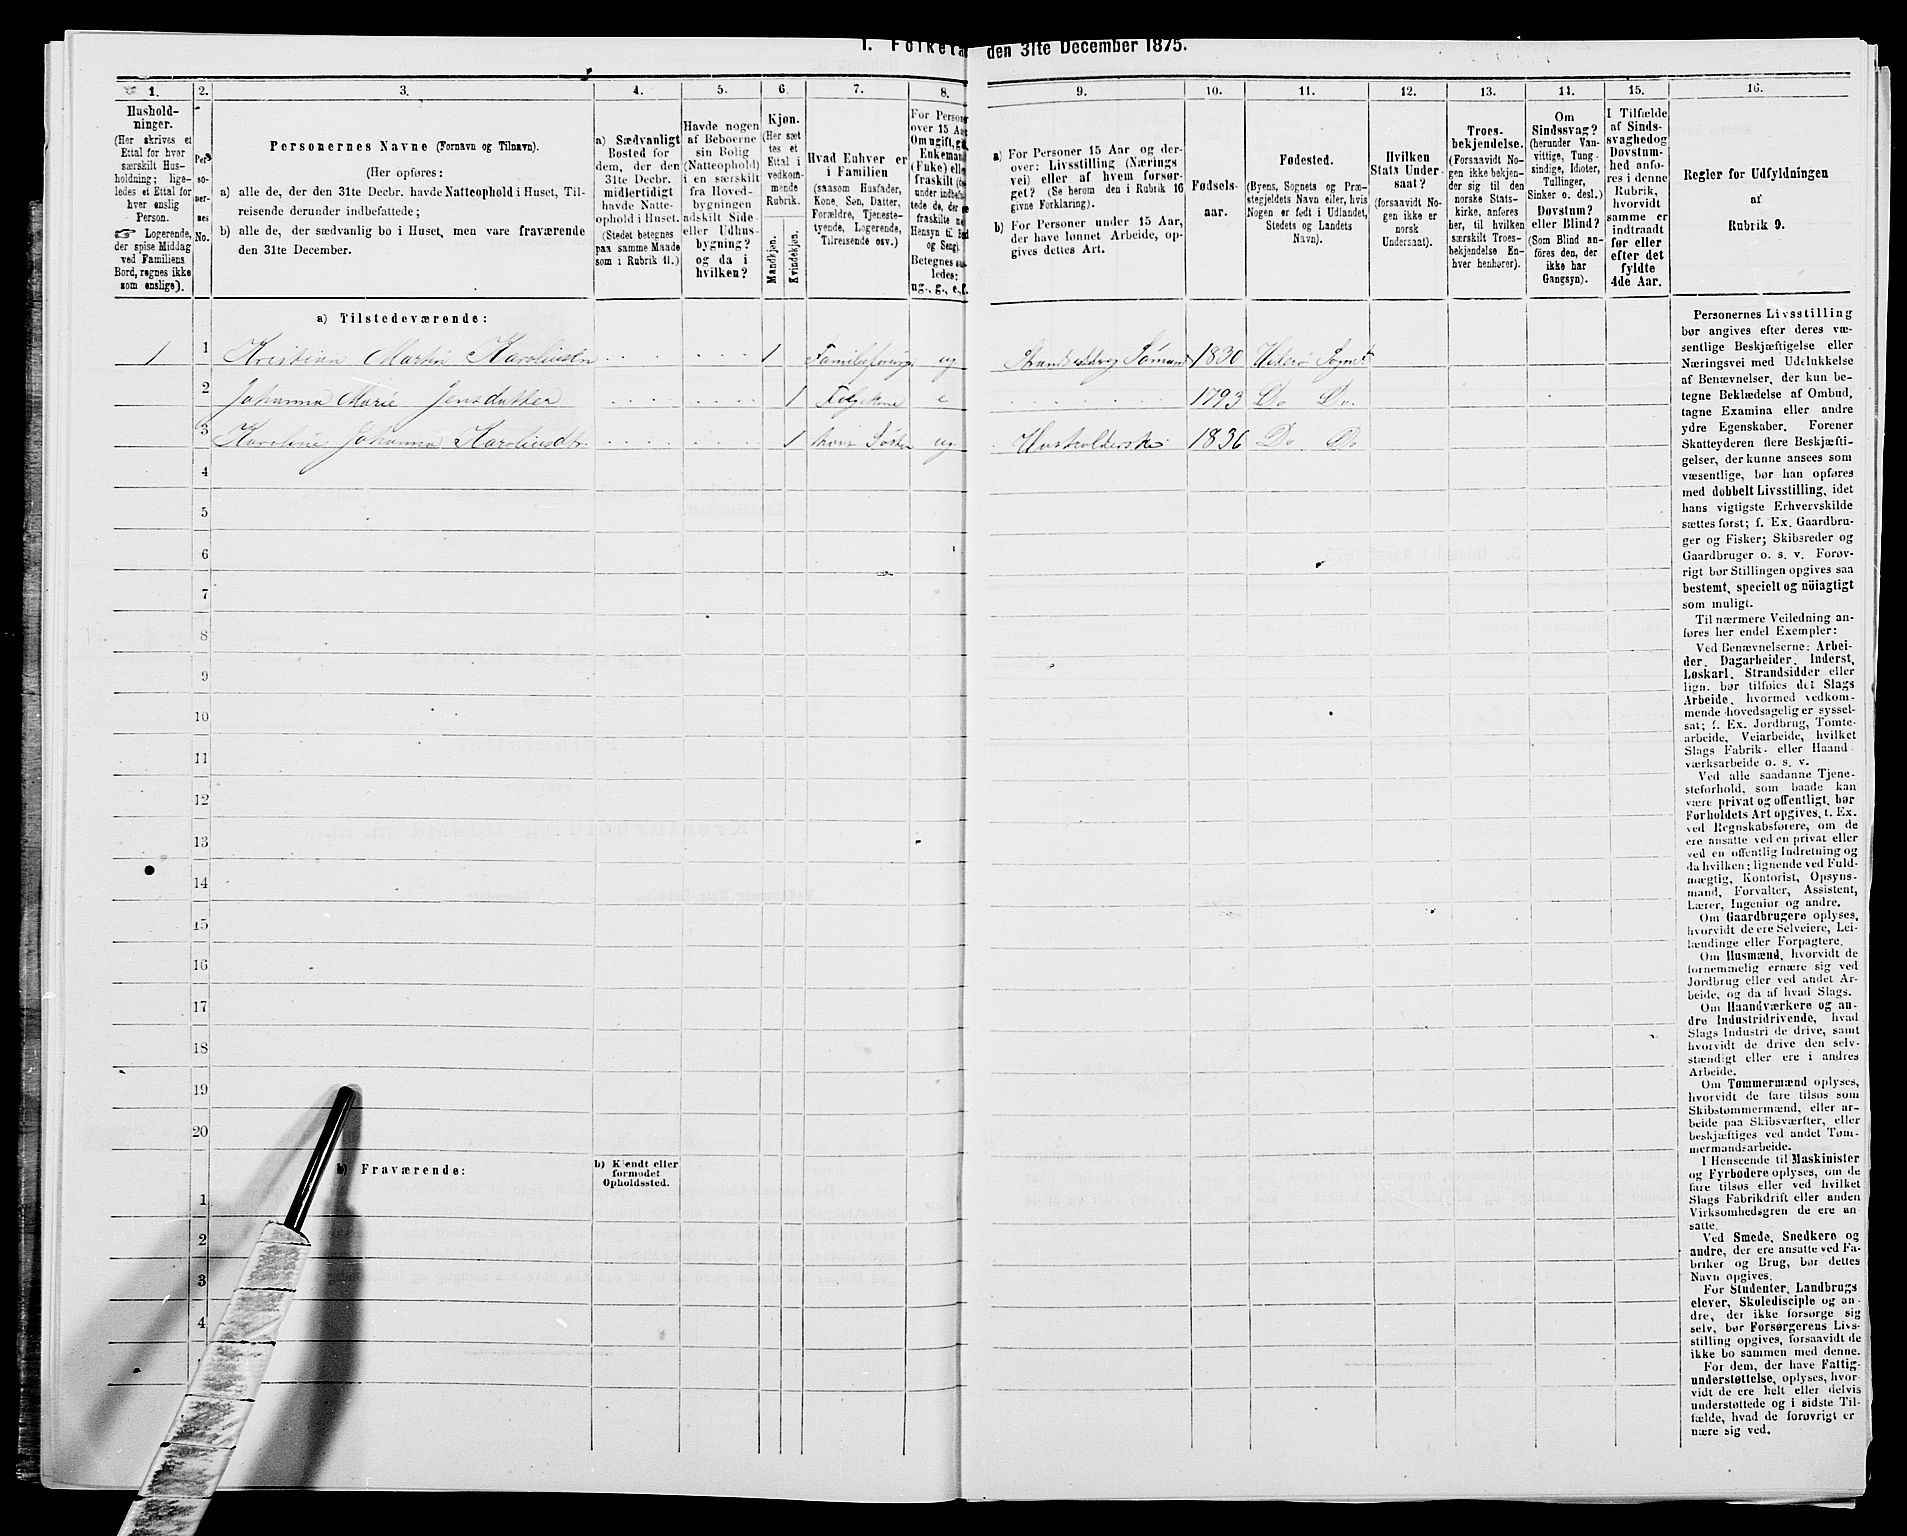 1. Folketæ den 31te December 1875.
1. 2. 3. 4. 5. 6. 7. 8. 9. 10. 11. 12. 13. 14. 15. 16.
Hushold-
ninger.
(Her skrives et
Ettal for hver
særskilt Hus-
holdning; lige-
ledes et Ettal for
hver enslig
Person.
☞ Logerende,
der spise Middag
ved Familiens
Bord, regnes ikke
som enslige).
Per
sone
rnes
No.
Personernes Navne (Fornavn og Tilnavn).
(Her opføres:
a) alle de, der den 31te Decbr. havde Natteophold i Huset, Til-
reisende derunder indbefattede;
b) alle de, der sædvanlig bo i Huset, men vare fraværende
den 31te December.
a) Sædvanligt
Bosted for
dem, der den
31te Decbr.
midlertidigt
havde Natte-
ophold i Huset.
(Stedet betegnes
paa samme Maade
som i Rubrik 11.)
Havde nogen
af Beboerne
sin Bolig
(Natteophold)
i en særskilt
fra Hoved-
bygningen
adskilt Side-
eller Udhus-
bygning?
og da i
hvilken?
Kjøn.
(Her sæt
tes et
Ettal i
vedkom-
mende
Rubrik.
Mandkjøn.
Kvindekjøn.
Hvad Enhver er
i Familien
(saasom Husfader,
Kone, Søn, Datter,
Forældre, Tjeneste-
tyende, Logerende,
Tilreisende osv.)
For Person
over 15 Aa
Om ugift, g
Enkeman
(Enke) ell
fraskilt (
under indbef
tede de, der
fraskilte
Hensyn til
og Seng).
Betegnes
ledes:
ug., g., e., f.
a) For Personer 15 Aar og der-
over: Livsstilling (Nærings
vei) eller af hvem forsør-
get? (Se herom den i Rubrik 16
givne Forklaring).
b) For Personer under 15 Aar,
der have lønnet Arbeide, op-
gives dettes Art.
Fødsels-
aar.
Fødested.
(Byens, Sognets og Præ-
stegjeldets Navn eller, hvis
Nogen er født i Udlandet,
Stedets og Landets
Navn).
Hvilken
Stats Under-
saat?
(forsaavidt No-
gen ikke er
norsk
Undersaat).
Troes-
bekjendelse.
(Forsaavidt No-
gen ikke bekjen-
der sig til den
norske Stats-
kirke, anføres
her, til hvilken
særskilt Troes-
bekjendelse En-
hver henhører).
Om
Sindssvag?
(herunder Van-
vittige, Tung-
sindige, Idioter,
Tullinger,
Sinker o. desl.)
Døvstum?
eller Blind?
(Som Blind an-
føres den, der
ikke har
Gangsyn).
I Tilfælde
af Sinds-
svaghedog
Døvstum-
hed anfø-
res i denne
Rubrik,
hvorvidt
samme er
indtraadt
før eller
efter det
fyldte
4de Aar.
Regler for Udfyldningen
af
Rubrik 9.
a) Tilstedeværende:
1 1 Kristian Martin 1 ug 1830 Sognet
2 Johanna Marie Jensdatter 1 e 1793 Do Do.
3 Karoline Johanna 1 hans Søster ug Husholderske 1836 Do Do
4
5
6
7
8
9
10
11
12
13
14
15
16
17
18
19
20
b) Fraværende:
b) Kjendt eller
formodet
Opholdssted.
1
2
3
4
Personernes Livsstilling
bør angives efter deres væ-
sentlige Beskjæftigelse eller
Næringsvei med Udelukkelse
af Benævnelser, der kun be-
tegne Beklædelse af Ombud,
tagne Examina eller andre
ydre Egenskaber. Forener
Skatteyderen flere Beskjæfti-
gelser, der kunne ansees som
væsentlige, bør han opføres
med dobbelt Livsstilling, idet
hans vigtigste Erhvervskilde
sættes først; f. Ex. Gaardbru-
ger og Fisker; Skibsreder og
Gaardbruger o. s. v. Forøv-
rigt bør Stillingen opgives saa
bestemt, specielt og nöiagtigt
som muligt.
Til nærmere Veiledning an-
føres her endel Exempler:
Ved Benævnelserne: Arbei-
der, Dagarbeider, Inderst,
Løskarl, Strandsidder eller
lign. bør tilføies det Slags
Arbeide, hvormed vedkom-
mende hovedsagelig er syssel-
sat; f. Ex. Jordbrug, Tomte-
arbeide, Veiarbeide, hvilket
Slags Fabrik- eller Haand-
værksarbeide o. s. v.
Ved alle saadanne Tjene-
steforhold, som baade kan
være privat og offentligt, bør
Forholdets Art opgives, t. Ex.
ved Regnskabsførere, om de
ere ansatte ved en privat eller
ved en offentlig Indretning og
da hvilken; lignende ved Fuld-
mægtig, Kontorist, Opsyns-
mand, Forvalter, Assistent,
Lærer, Ingeniør og andre.
Om Gaardbrugere oplyses,
hvorvidt de ere Selveiere, Lei-
lændinge eller Forpagtere.
Om Husmænd, hvorvidt de
fornemmelig ernære sig ved
Jordbrug eller ved andet Ar-
beide, og da af hvad Slags.
Om Haandværkere og an-
dre Industridrivende, hvad
Slags Industri de drive, samt
hvorvidt de drive den selv-
stændigt eller ere i andres
Arbeide.
Om Tømmermænd oplyses,
hvorvidt de fare tilsøs som
Skibstømmermænd, eller ar-
beide paa Skibsværfter, eller
beskjæftiges ved andet Tøm-
mermandsarbeide.
I Henseende til Maskinister
og Fyrbødere oplyses, om de
fare tilsøs eller ved hvilket
Slags Fabrikdrift eller anden
Virksomhedsgren de ere an
satte.
Ved Smede, Snedkere og
andre, der ere ansatte ved Fa-
briker og Brug, bør dettes
Navn opgives.
For Studenter, Landbrugs
elever, Skoledisciple og an-
dre, der ikke forsørge sig
selv, bør Forsørgerens Livs-
stilling opgives, forsaavidt de
ikke bo sammen med denne.
For dem, der have Fattig-
understøttelse, oplyses, hvor-
vidt de ere helt eller delvis
understøttede og i sidste Til-
fælde, hvad de forøvrigt er
nære sig ved.